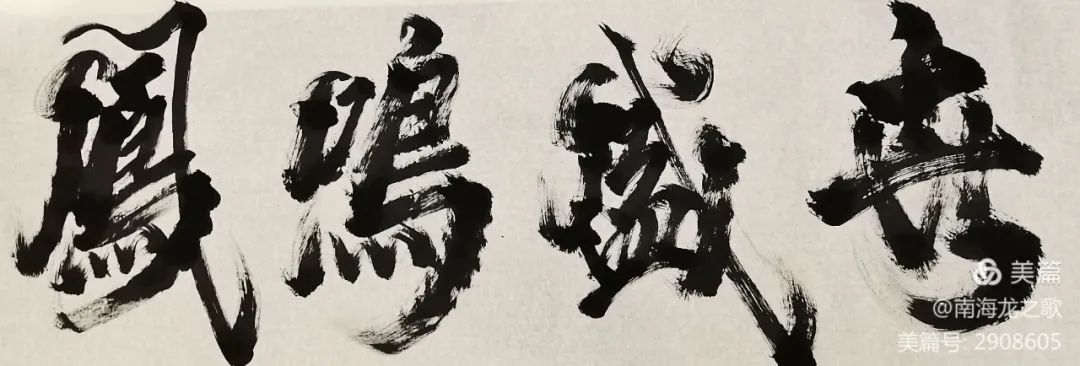 鳳鳴盛世
美篇
@南海龙之歌
美篇号: 2908605